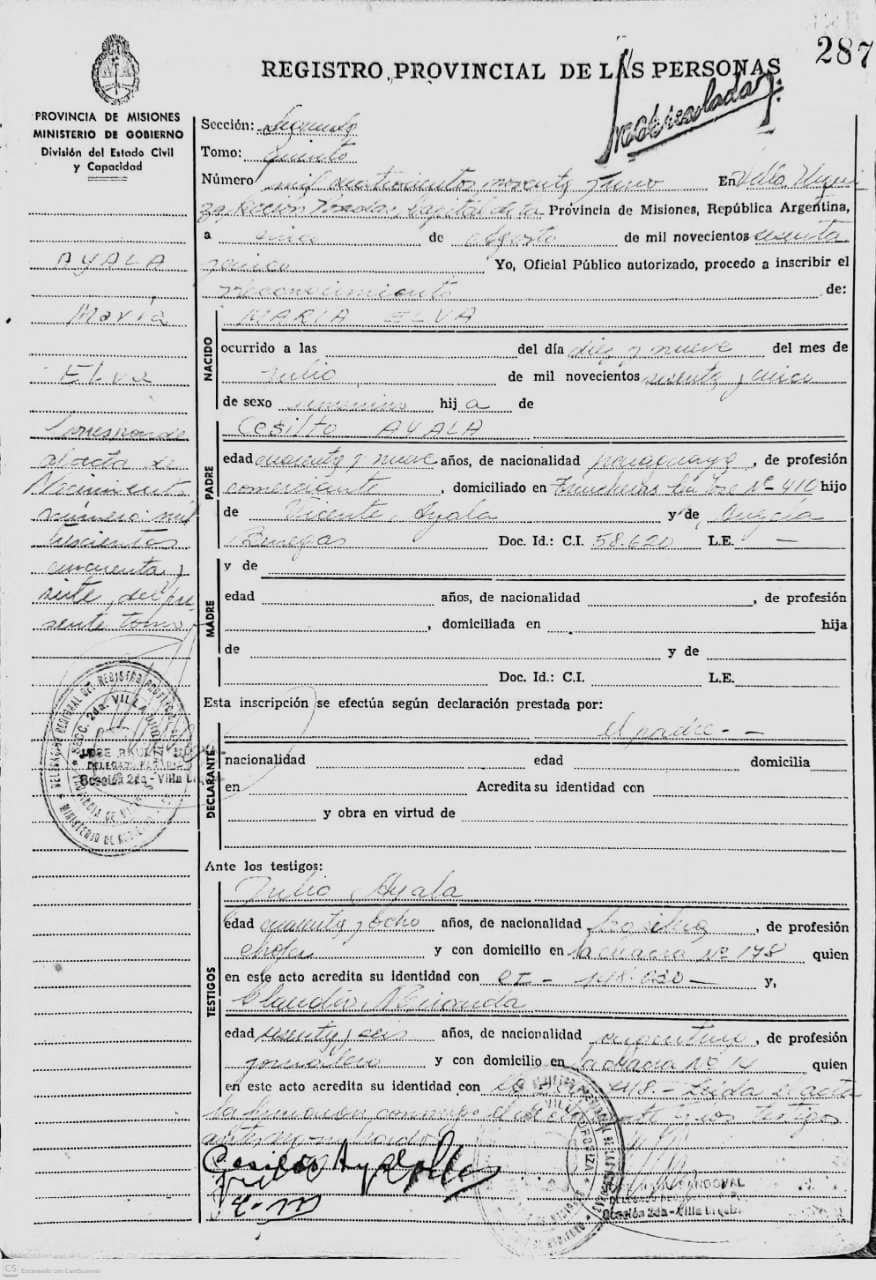 287
REGISTRO PROVINCIAL DE LAS PERSONAS
PROVINCIA DE MISIONES
MINISTERIO DE GOBIERNO
División del Estado Civil
y Capacidad
Sección: Segunda
Tomo: quinto
Número mil cuatrocientos noventa y uno En Villa Urqui
za, Sección Posadas, Capital de la Provincia de Misiones, República Argentina,
a de agosto de mil novecientos sesenta
y cinco Yo, Oficial Público autorizado, procedo a inscribir el
reconocimiento de:
AYALA
María
Elva
Corresponde
al acta de
Nacimiento
número mil
trescientos
cincuenta y
siete, del pre
sente tomo
NACIDO
MARIA ELVA
ocurrido a las del día diez y nueve del mes de
Julio de mil novecientos sesenta y cinco
de sexo femenino hija de
PADRE
Cesilto AYALA
edad cuarenta y nueve años, de nacionalidad paraguaya, de profesión
comerciante, domiciliado en Nº 410 hijo
de Vicente Ayala y de Angela
Benegas Doc. Id.: C.I. 58.620 L.E. —
MADRE
y de
edad años, de nacionalidad , de profesión
, domiciliada en hija
de y de
Doc. Id.: C.I. L.E.
Esta inscripción se efectúa según declaración prestada por:
DECLARANTE
el padre - —
nacionalidad edad domicilia
en Acredita su identidad con
y obra en virtud de
Ante los testigos:
TESTIGOS
Julio Ayala
edad cuarenta y ocho años, de nacionalidad , de profesión
chofer y con domicilio en la chacra Nº 178 quien
en este acto acredita su identidad con y,
Claudio Miranda
edad sesenta y seis años, de nacionalidad argentino, de profesión
jornalero y con domicilio en la chacra Nº quien
en este acto acredita su identidad con Leida el acta
la firman conmigo el y los testigos
SECC. 2da. VILLA URQUIZA
Sección 2da - Villa Urquiza
Sección 2da - Villa Urquiza
CS Escaneado con CamScanner